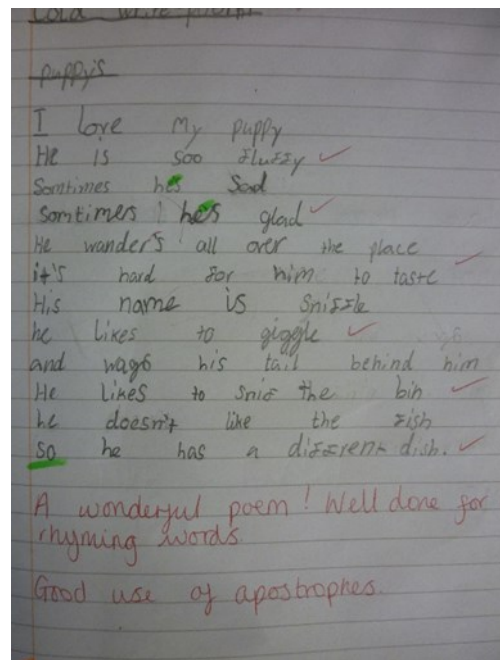 Cold write poem
puppy's
I love my puppy
He is soo fluffy
Somtimes he's Sad
Somtimes he's glad
He wander's all over the place
it's hard for him to taste
His name is Sniffle
he likes to giggle
and wags his tail behind him
He Likes to snif the bin
he doesn't like the fish
so he has a diffrent dish.
A wonderful poem! Well done for
rhyming words.
Good use of apostrophes.